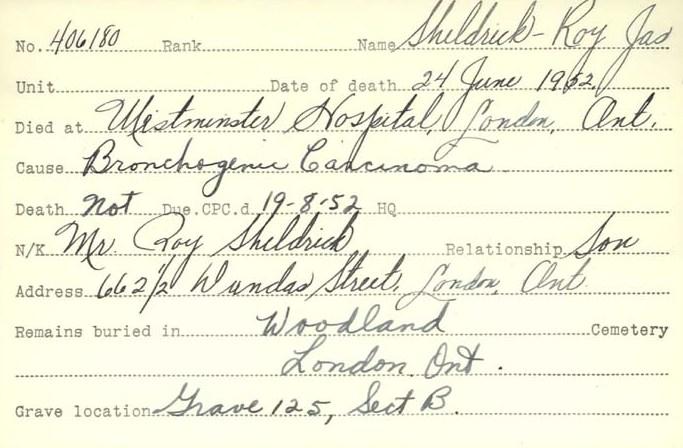 No. 406180 Rank Name Sheldrick - Roy Jas
Unit Date of death 24 June 1952
Died at Westminster Hospital, London, Ont.
Cause Bronchogenic Carcinoma
Death Not Due. CPC.d 19-8-52 HQ
N/K Mr. Roy Sheldrick Relationship Son
Address 662 1/2 Dundas Street, London, Ont
Remains buried in Woodland Cemetery
London, Ont.
Grave location Grave 125, Sect B.